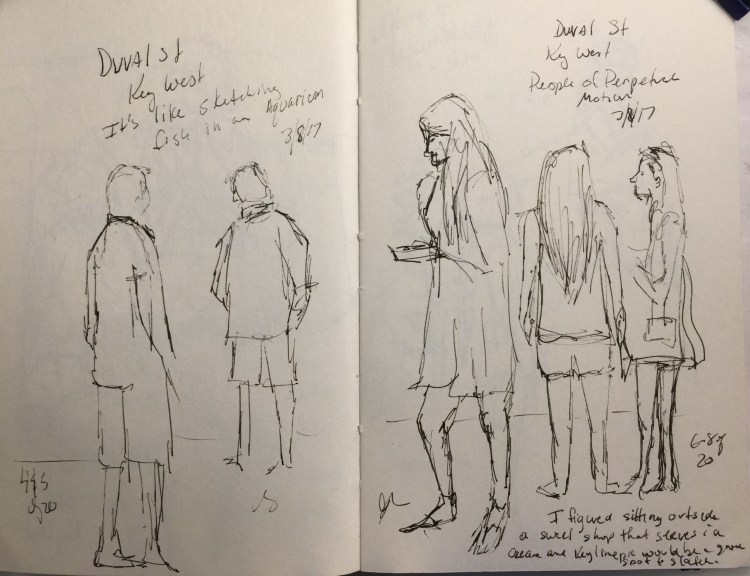 Duval St
Key West
It's like sketching
fish in an Aquarium
3/8/17
4&5
of 20
Duval St
Key West
People of Perpetual
Motion
3/8/17
6-8 of
20
I figured sitting outside
a sweet shop that serves ice
cream and Key lime pie would be a good
spot to sketch.